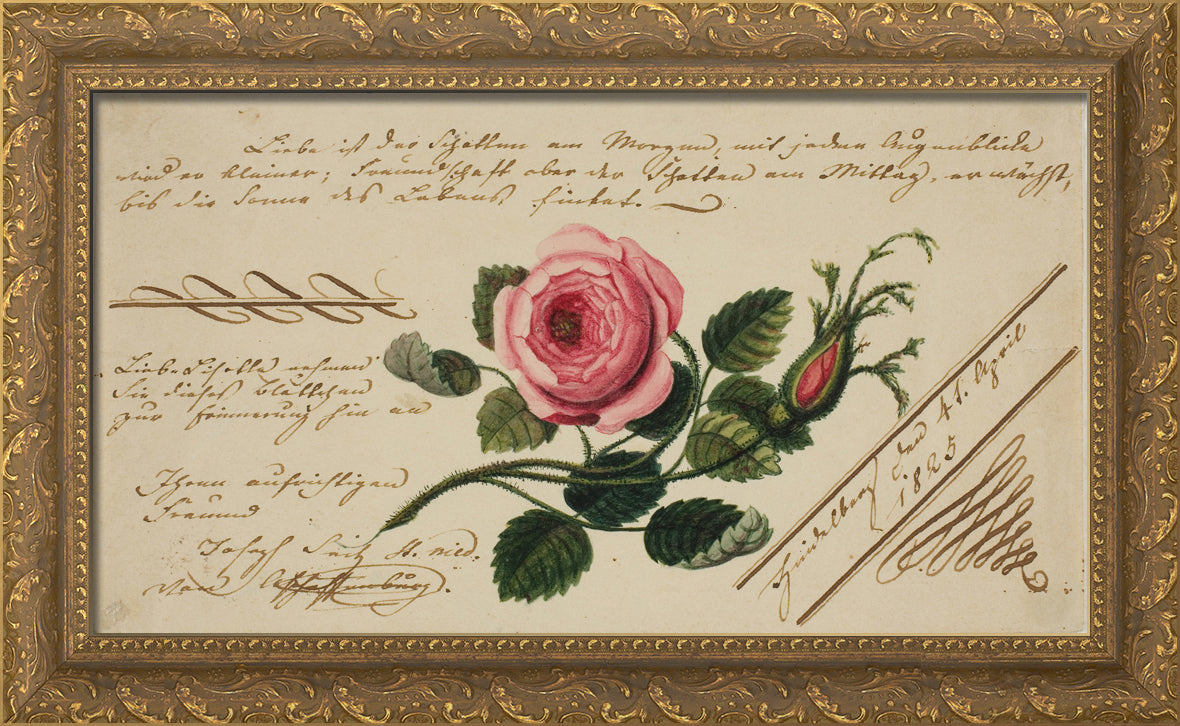 Liebe ist der Schatten am Morgen, mit jedem Augenblicke
wird er kleiner; Freundschaft aber der Schatten am Mittag, er wächst,
bis die Sonne des Lebens sinket.
Liebe nehmen
Sie dieses Blättchen
zur Erinnerung hin an
Ihren aufrichtigen
Freund
Joseph Fritz
von
Heidelberg den 41. April
1825